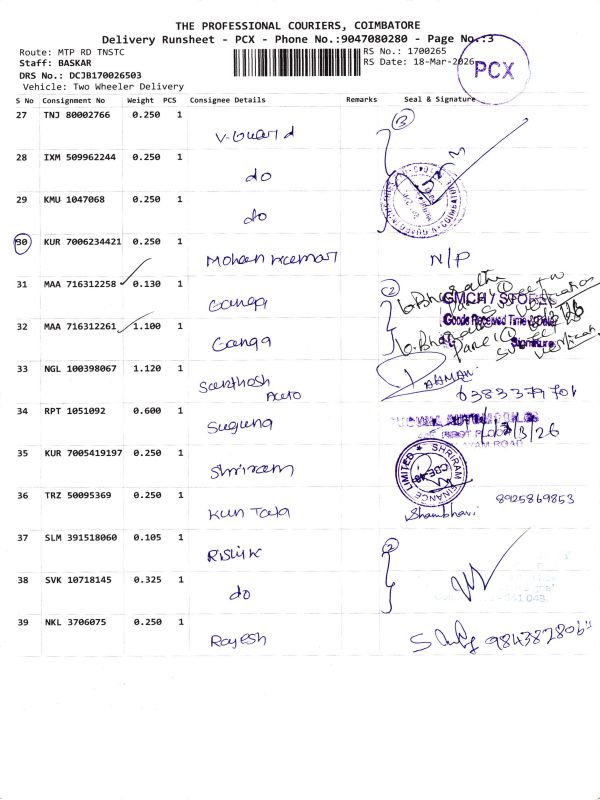 THE PROFESSIONAL COURIERS, COIMBATORE
Delivery Runsheet - PCX - Phone No.:9047080280 - Page No.:3
Route: MTP RD TNSTC
RS No.: 1700265
Staff: BASKAR
RS Date: 18-Mar-2026
PCX
DRS No.: DCJB170026503
Vehicle: Two Wheeler Delivery
S No Consignment No Weight PCS Consignee Details Remarks Seal & Signature
27 TNJ 80002766 0.250 1
V-Guard
3
28 IXM 509962244 0.250 1
do
29 KMU 1047068 0.250 1
do
30 KUR 7006234421 0.250 1
Mohan kumar N/P
31 MAA 716312258 0.130 1
Ganga
2
GMCH / STORES
32 MAA 716312261 1.100 1
Goods Received Time & Date
Ganga
Signature
33 NGL 100398067 1.120 1
Santhosh
Auto
RAHMAN
6383379701
34 RPT 1051092 0.600 1
Suguna
FIRST FLOOR
/3/26
35 KUR 7005419197 0.250 1
Shriram
SHRIRAM FINANCE LIMITED
CBE-48
36 TRZ 50095369 0.250 1
Kun Tata
Shambhavi 8925869853
37 SLM 391518060 0.105 1
2
38 SVK 10718145 0.325 1
do
39 NKL 3706075 0.250 1
Rajesh